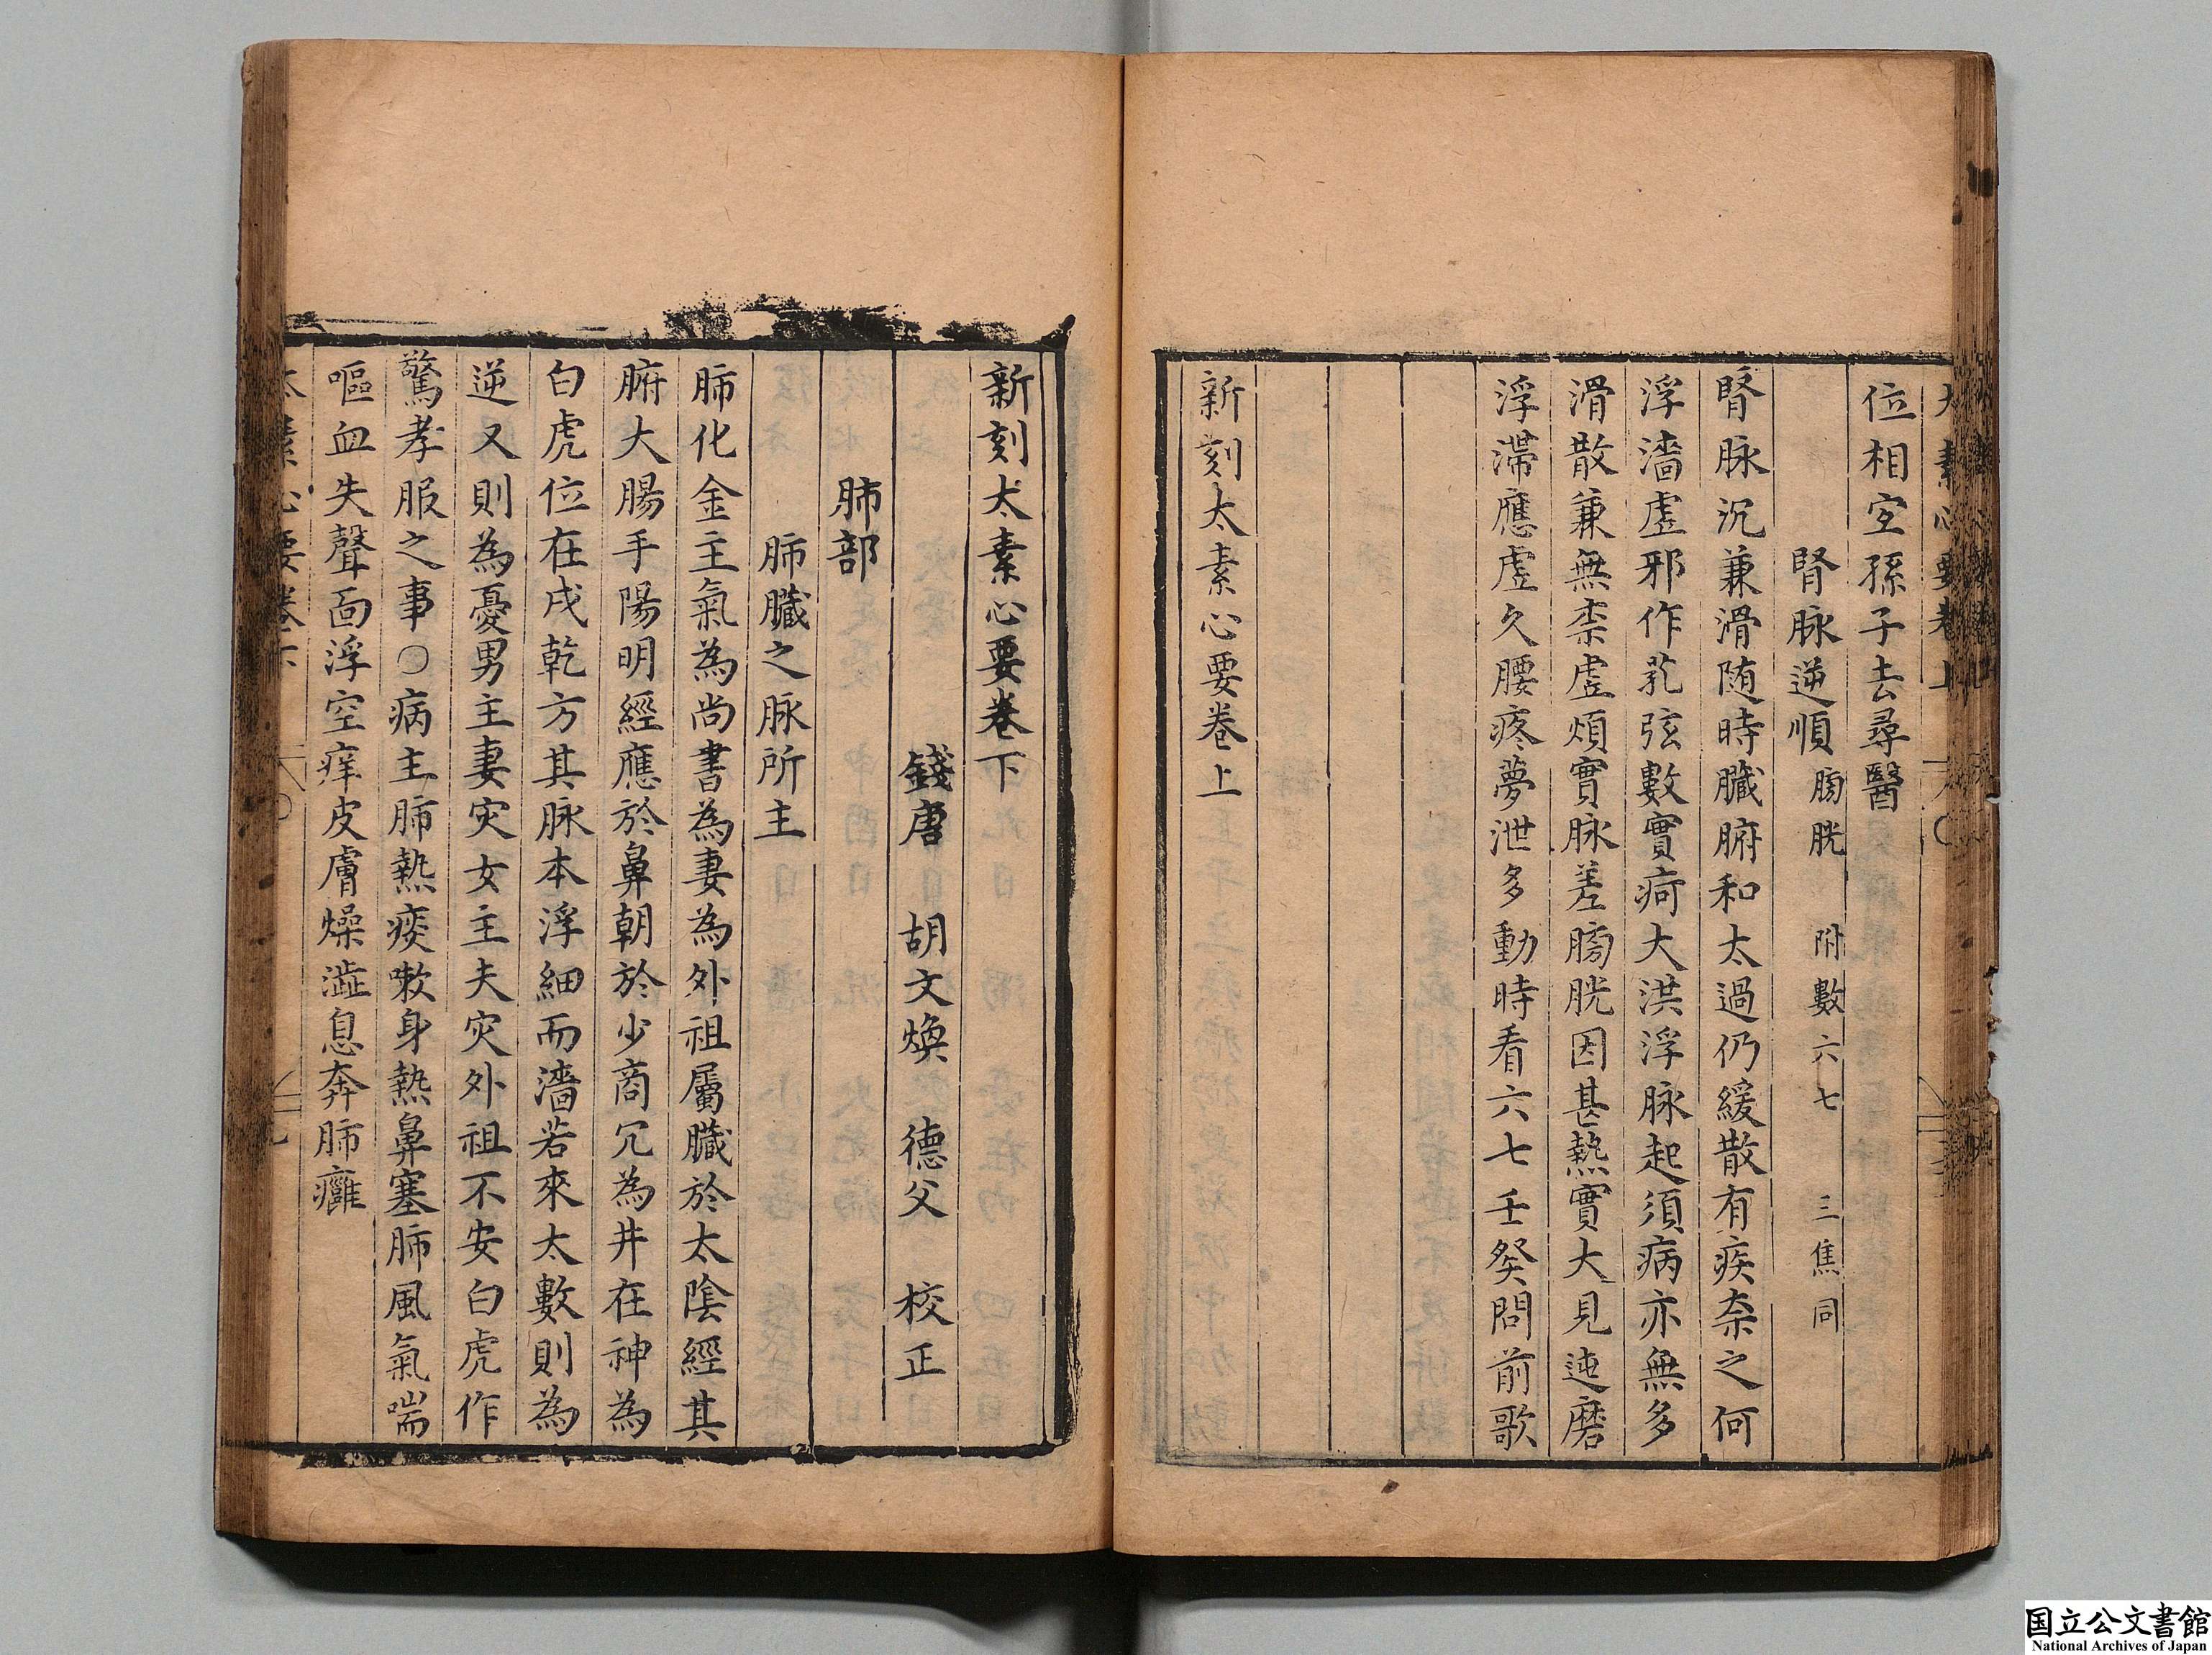 太素心要卷上
位相空孫子去尋醫
腎脉逆順 膀胱 附數六七 三焦同
腎脉沉兼滑随時臟腑和太過仍緩散有疾柰之何
浮濇虛邪作芤弦數實疴大洪浮脉起須病亦無多
滑散兼無柰虛煩實脉差膀胱因甚熱實大見迍磨
浮滯應虛久腰疼夢泄多動時看六七壬癸問前歌
新刻太素心要卷上
新刻太素心要卷下
錢唐 胡文煥 德父 校正
肺部
肺臟之脉所主
肺化金主氣為尚書為妻為外祖屬臟於太陰經其
腑大腸手陽明經應於鼻朝於少商冗為井在神為
白虎位在戌乾方其脉本浮細而濇若來太數則為
逆又則為憂男主妻灾女主夫灾外祖不安白虎作
驚孝服之事○病主肺熱痰嗽身熱鼻塞肺風氣喘
嘔血失聲面浮空痒皮膚燥澁息奔肺癰
太素心要卷下
国立公文書館
National Archives of Japan